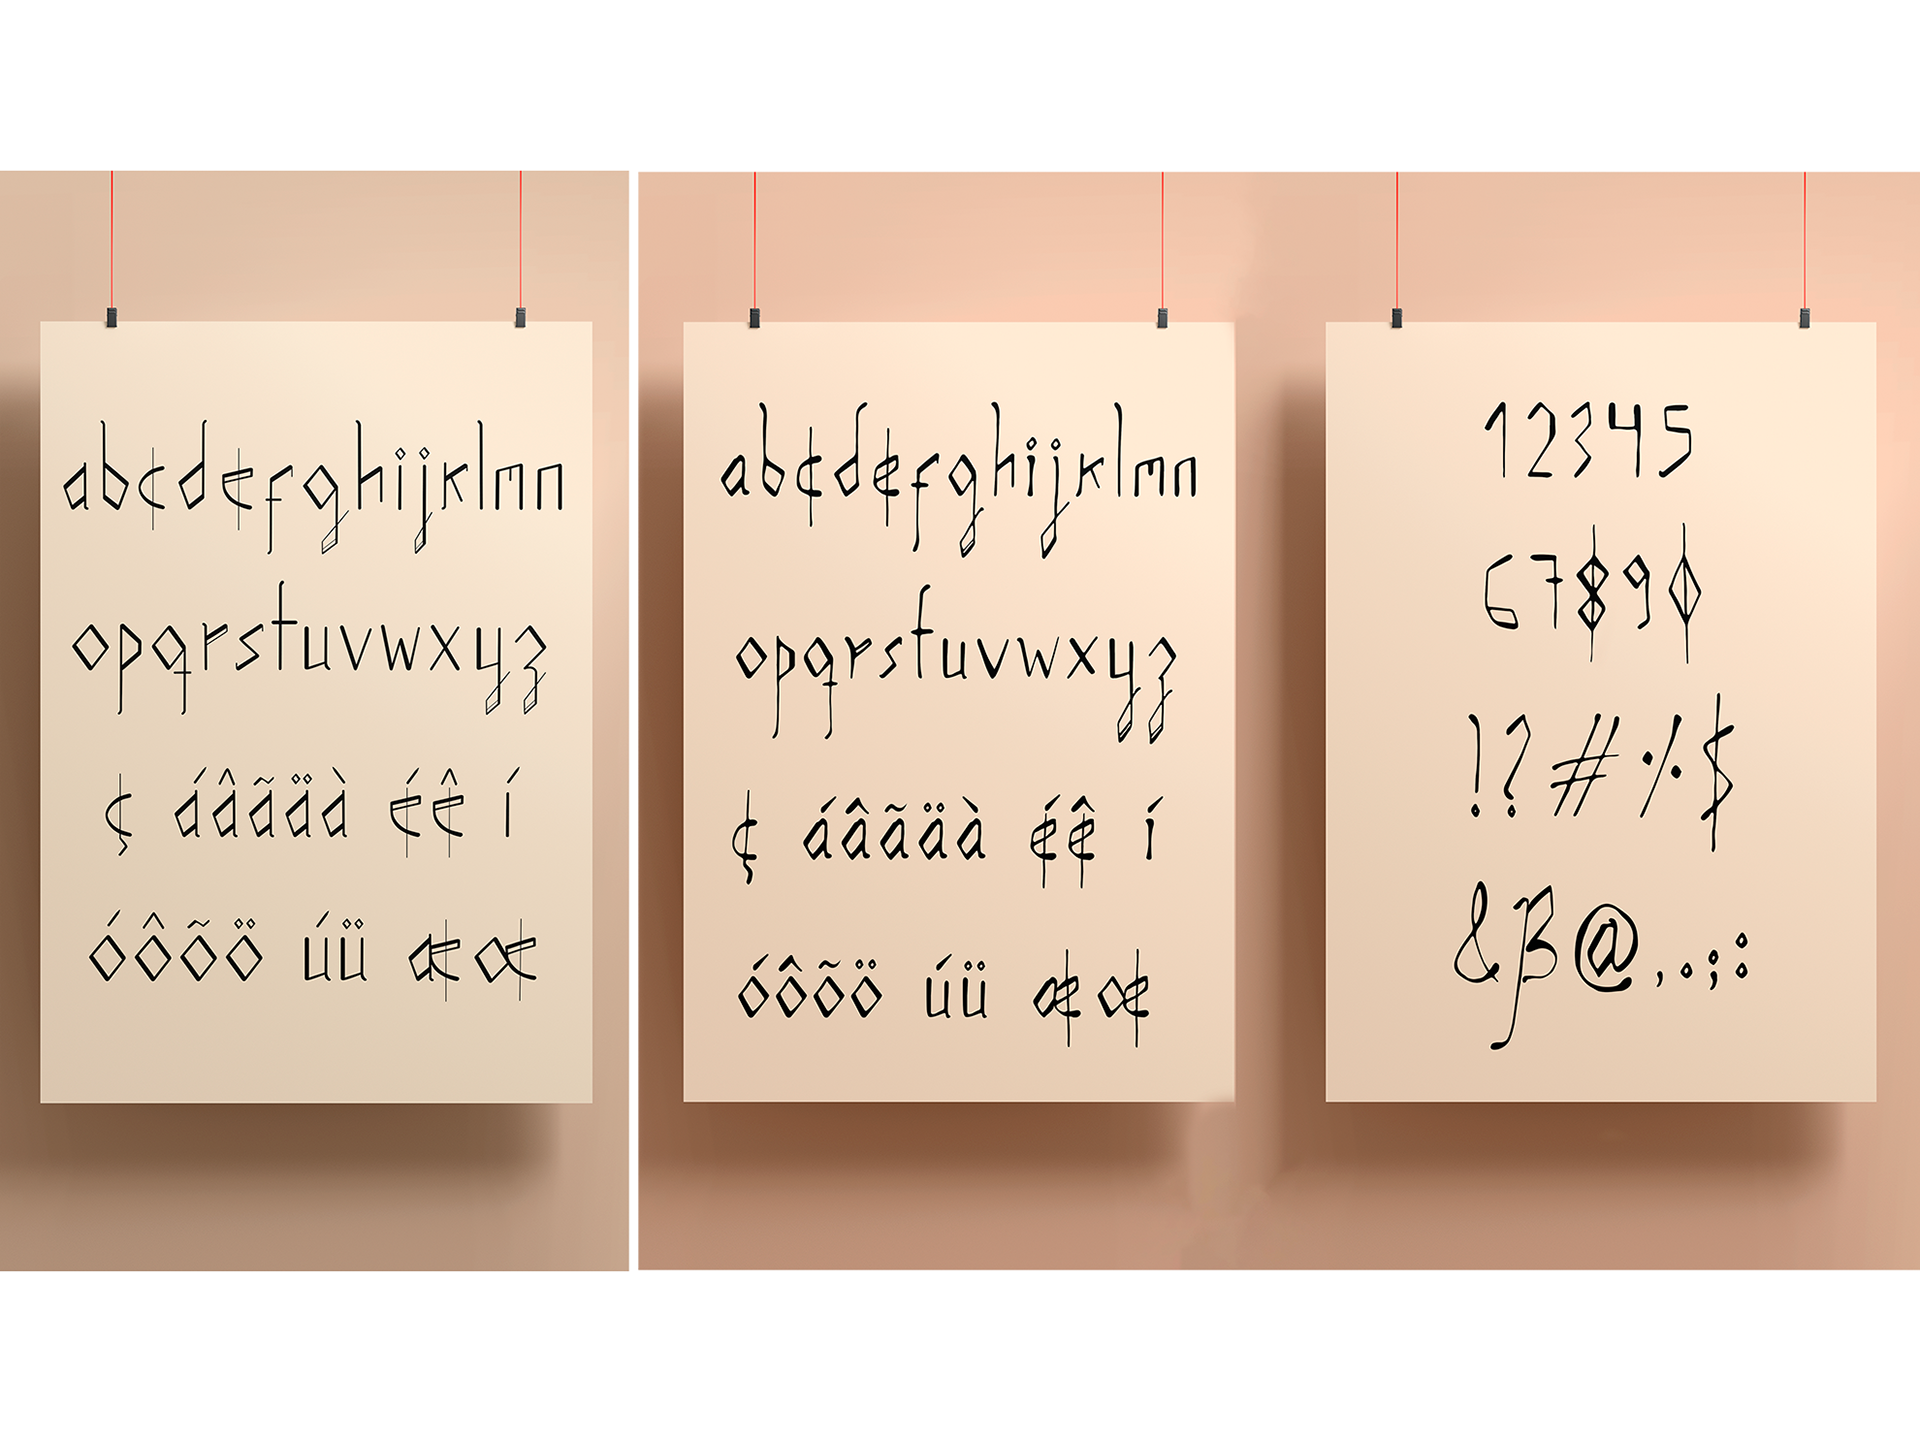 abcdefghijklmn
opqrstuvwxyz
ç áâãäà éê í
óôõö úü æœ
abcdefghijklmn
opqrstuvwxyz
ç áâãäà éê í
óôõö úü æœ
12345
67890
!?#%$
&ß@,.;: